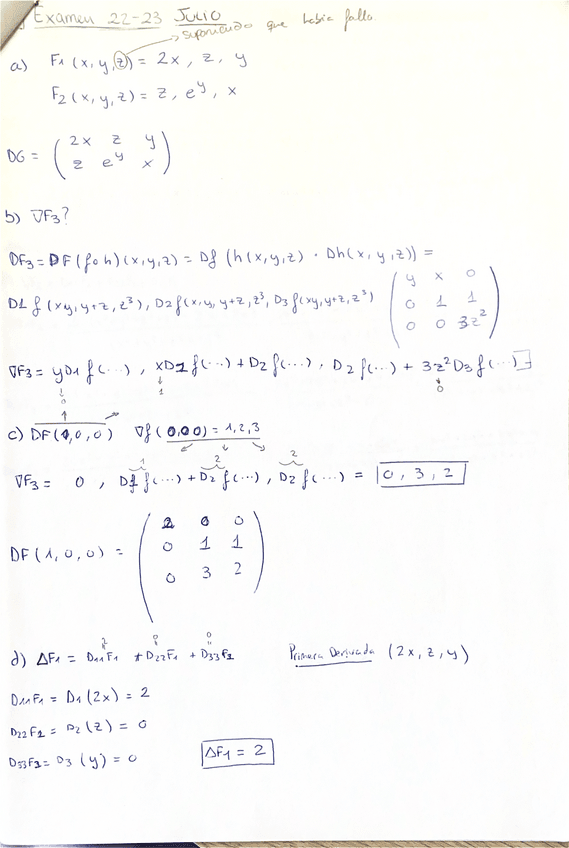 Examen 22-23 JULIO
suponiendo que habia fallo
a) F1 (x, y, z) = 2x, z, y
F2 (x, y, z) = z, e^y, x
DG = ( 2x z y
z e^y x )
b) ∇F3?
DF3 = DF (f∘h) (x, y, z) = Df (h(x, y, z) · Dh(x, y, z)) =
D1 f (xy, y+z, z³), D2 f (x, y, y+z, z³, D3 f (xy, y+z, z³) ( y x 0
0 1 1
0 0 3z² )
∇F3 = y D1 f (...), x D1 f (...) + D2 f (...), D2 f (...) + 3z² D3 f (...)]
↓ 0 ↓ 1 ↓ 0
c) DF (1, 0, 0) ∇f (0,0,0) = 1, 2, 3
1 2 2
∇F3 = 0, D1 f (...) + D2 f (...), D2 f (...) = 0, 3, 2
DF (1, 0, 0) = ( 2 0 0
0 1 1
0 3 2 )
2 0 0
d) ΔF1 = D11 F1 + D22 F1 + D33 F1 Primera Derivada (2x, z, y)
D11 F1 = D1 (2x) = 2
D22 F1 = D2 (z) = 0
D33 F1 = D3 (y) = 0 ΔF1 = 2